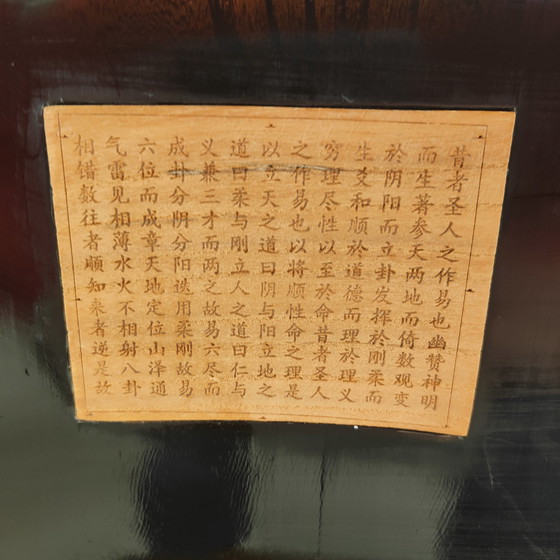 昔者圣人之作易也幽赞神明
而生著参天两地而倚数观变
於阴阳而立卦发挥於刚柔而
生爻和顺於道德而理於理义
穷理尽性以至於命昔者圣人
之作易也以将顺性命之理是
以立天之道曰阴与阳立地之
道曰柔与刚立人之道曰仁与
义兼三才而两之故易六尽而
成卦分阴分阳迭用柔刚故易
六位而成章天地定位山泽通
气雷见相薄水火不相射八卦
相错数往者顺知来者逆是故